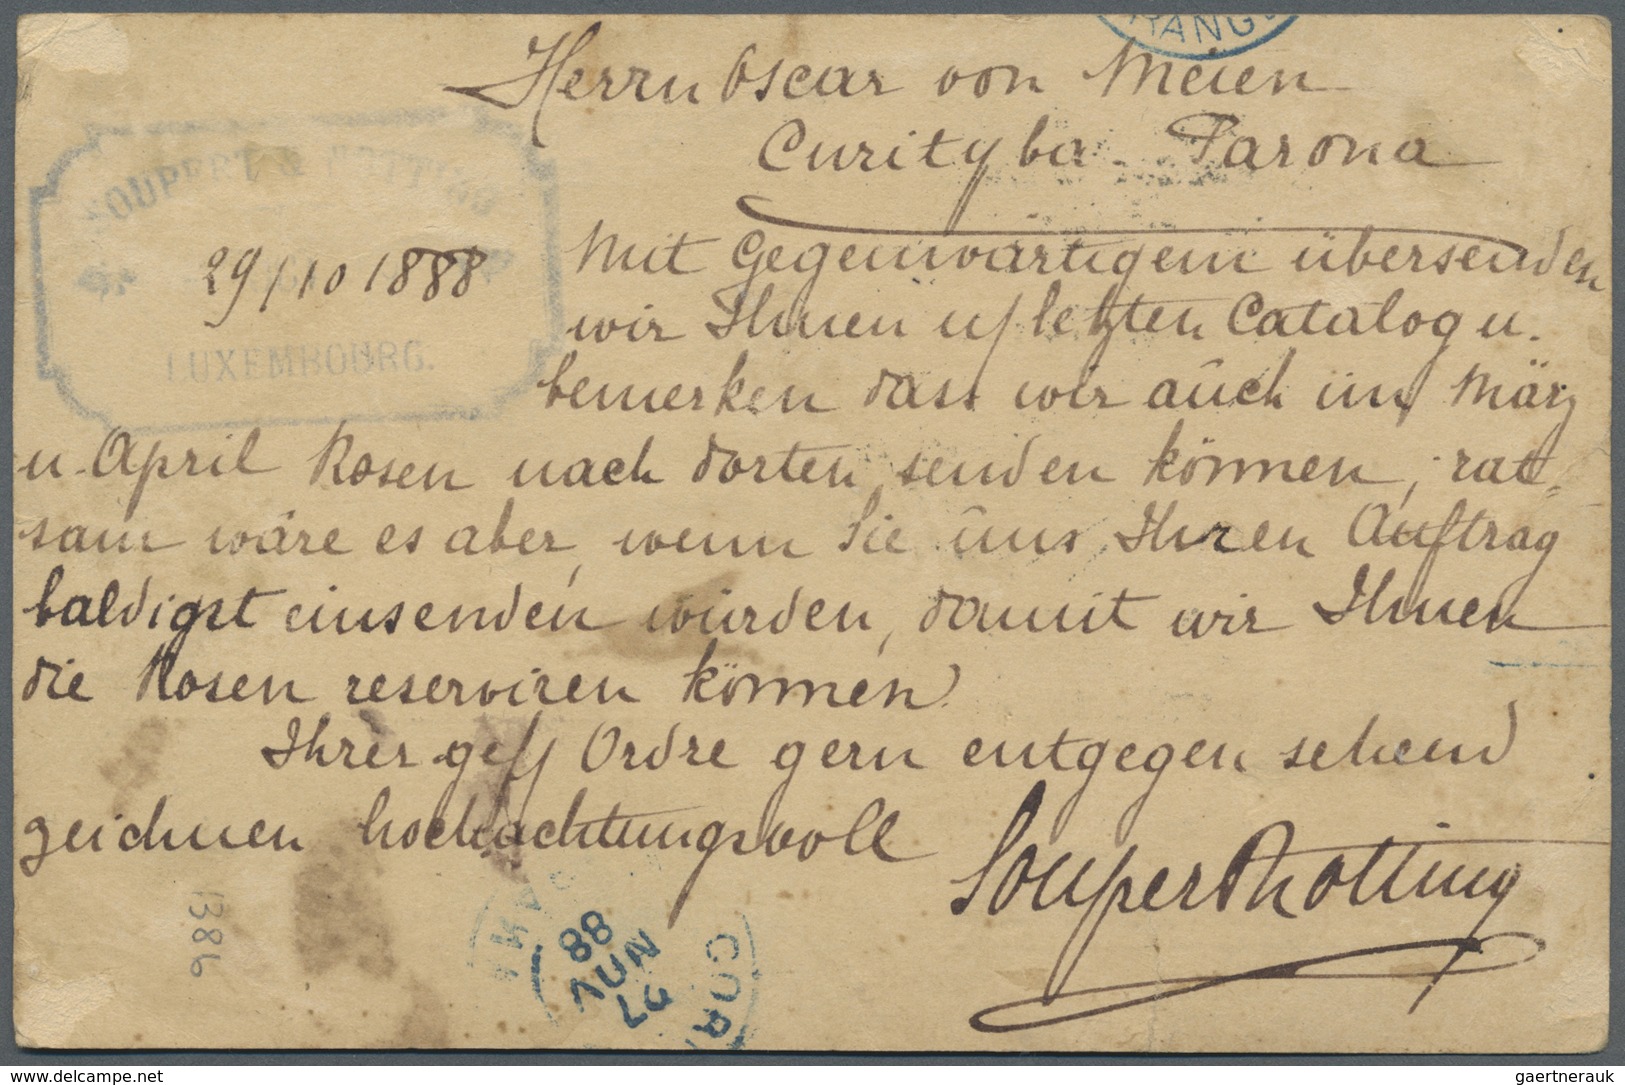 RANG
Herrn Oscar von Meien
Curityba. Parona
SOUPERT & NOTTING
LUXEMBOURG.
29/10 1888
Mit Gegenwärtigem übersenden
wir Ihnen u/ letzten Catalog u.
bemerken dass wir auch im März
u. April Rosen nach dorten senden können, rat-
sam wäre es aber, wenn Sie uns Ihren Auftrag
baldigst einsenden würden, damit wir Ihnen
die Rosen reserviren können.
Ihrer gefl Ordre gern entgegen sehend
zeichnen hochachtungsvoll
Soupert Notting
1386
COR
27
NOV
88
www.delcampe.net
gaertnerauk